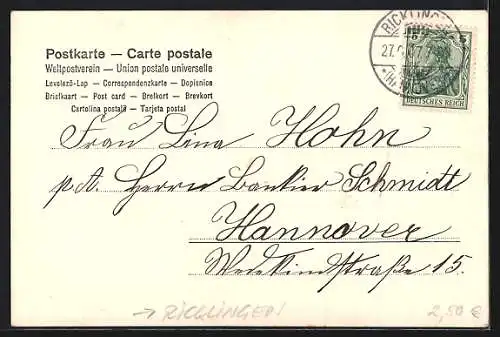 Postkarte — Carte postale
Weltpostverein — Union postale universelle
Levelező-Lap — Correspondenzkarte — Dopisnice
Briefkaart — Post card — Brefkort — Brevkort
Cartolina postale — Tarjeta postal
RICKLING
27.
DEUTSCHES REICH
Frau Lina Hohn
p.A. Herrn Bankier Schmidt
Hannover
Wedekindstraße 15.
→ RICKLINGEN!
2,50 €